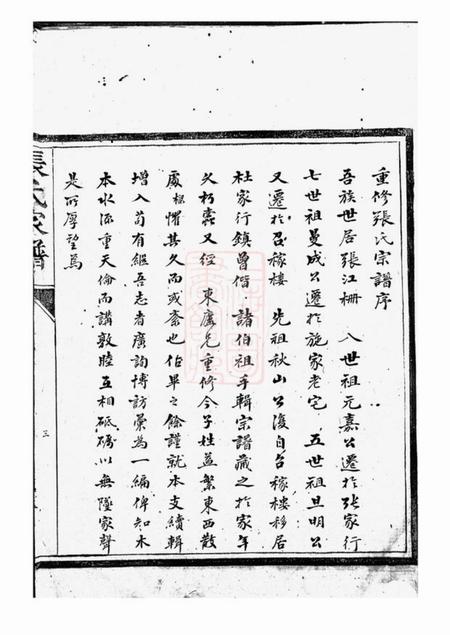 重修張氏宗譜序
吾族世居張江柵　八世祖元嘉公遷於張家行
七世祖曼成公遷於施家老宅　五世祖旦明公
又遷於召稼樓　先祖秋山公復自召稼樓移居
杜家行鎮曾偕　諸伯祖手輯宗譜藏之於家年
久朽蠹又經　東廬兄重修今子姓益繁東西散
處懼其久而或紊也作畢之餘謹就本支續輯
增入苟有繼吾志者廣詢博訪彙為一編俾知木
本水源重天倫而講敦睦互相砥礪以無墜家聲
是所厚望焉
張氏家譜
三